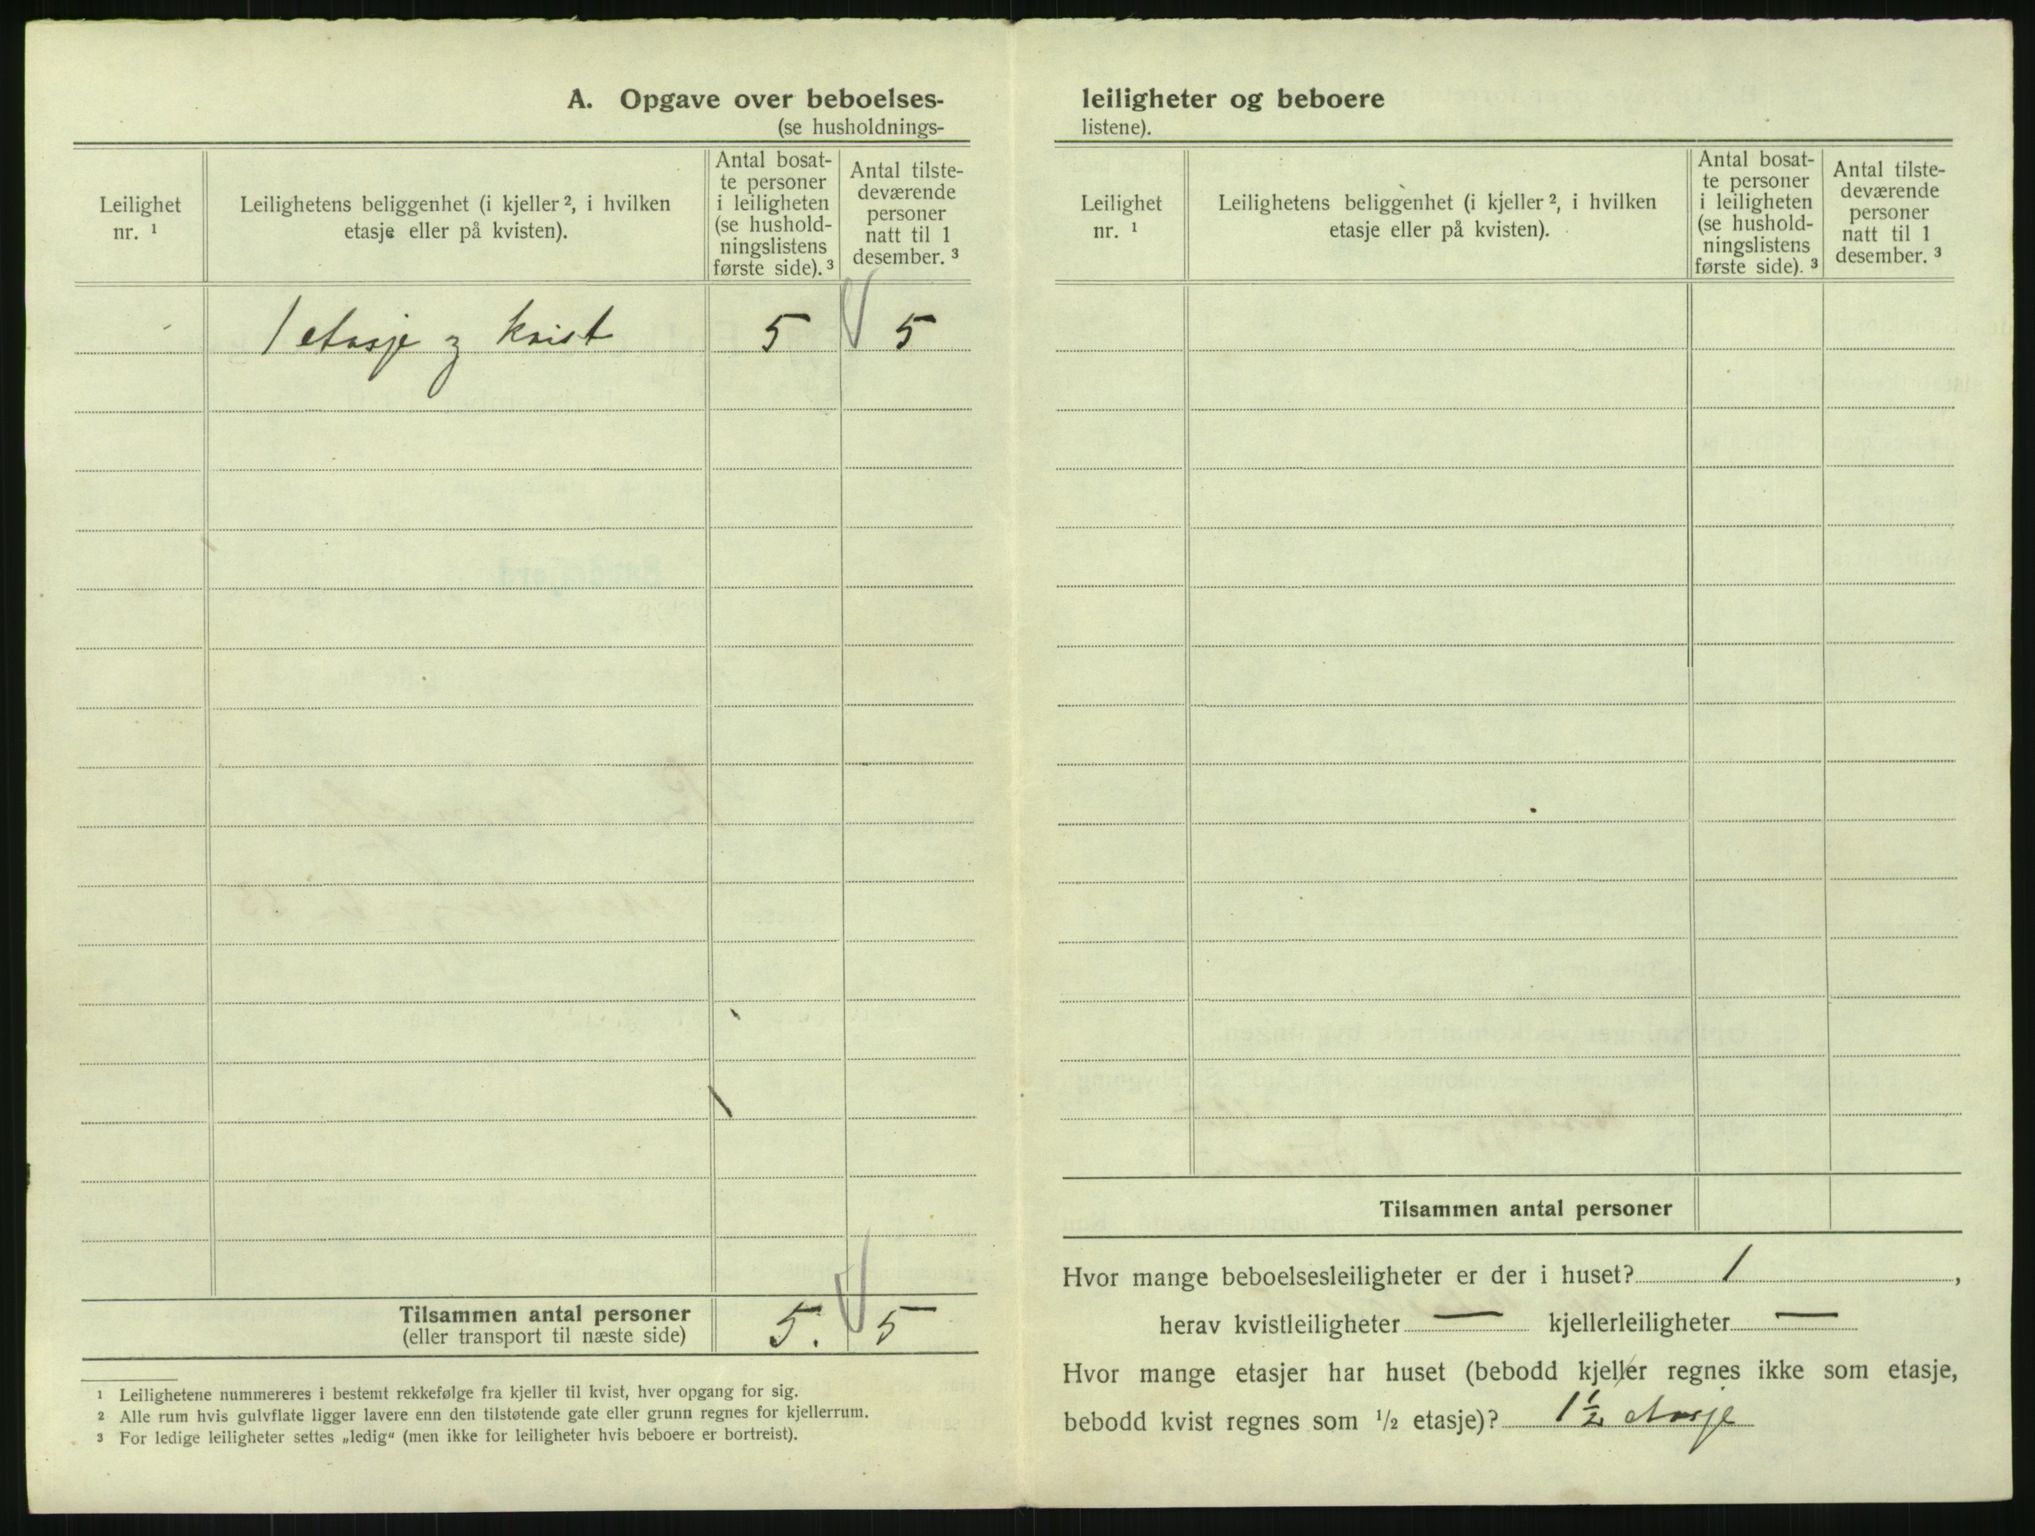 A. Opgave over beboelses-
(se husholdnings-
Leilighet
nr. ¹
Leilighetens beliggenhet (i kjeller ², i hvilken
etasje eller på kvisten).
Antal bosat-
te personer
i leiligheten
(se hushold-
ningslistens
første side). ³
Antal tilste-
deværende
personer
natt til 1
desember. ³
1 etasje og kvist 5 5
Tilsammen antal personer
(eller transport til næste side)
5. 5
¹ Leilighetene nummereres i bestemt rekkefølge fra kjeller til kvist, hver opgang for sig.
² Alle rum hvis gulvflate ligger lavere enn den tilstøtende gate eller grunn regnes for kjellerrum.
³ For ledige leiligheter settes „ledig“ (men ikke for leiligheter hvis beboere er bortreist).
leiligheter og beboere
listene).
Leilighet
nr. ¹
Leilighetens beliggenhet (i kjeller ², i hvilken
etasje eller på kvisten).
Antal bosat-
te personer
i leiligheten
(se hushold-
ningslistens
første side). ³
Antal tilste-
deværende
personer
natt til 1
desember. ³
Tilsammen antal personer
Hvor mange beboelsesleiligheter er der i huset? 1,
herav kvistleiligheter — kjellerleiligheter —
Hvor mange etasjer har huset (bebodd kjeller regnes ikke som etasje,
bebodd kvist regnes som ½ etasje)? 1½ etasje